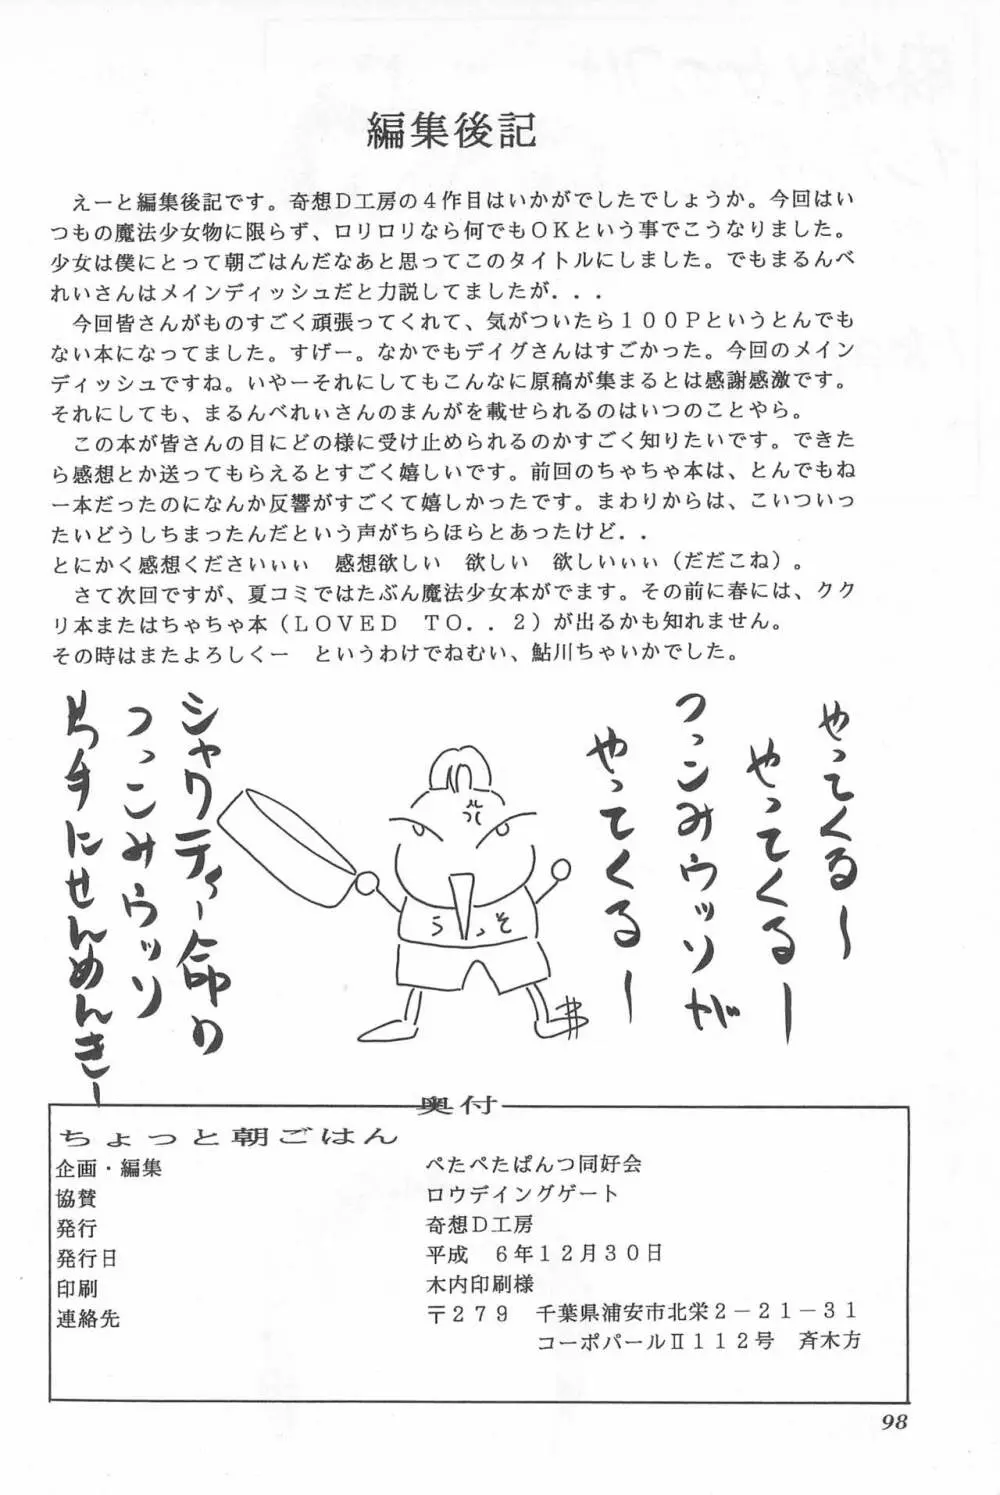 編集後記
えーと編集後記です。奇想Ｄ工房の４作目はいかがでしたでしょうか。今回はい
つもの魔法少女物に限らず、ロリロリなら何でもＯＫという事でこうなりました。
少女は僕にとって朝ごはんだなあと思ってこのタイトルにしました。でもまるんべ
れいさんはメインディッシュだと力説してましたが．．．
今回皆さんがものすごく頑張ってくれて、気がついたら１００Ｐというとんでも
ない本になってました。すげー。なかでもデイグさんはすごかった。今回のメイン
ディッシュですね。いやーそれにしてもこんなに原稿が集まるとは感謝感激です。
それにしても、まるんべれぃさんのまんがを載せられるのはいつのことやら。
この本が皆さんの目にどの様に受け止められるのかすごく知りたいです。できた
ら感想とか送ってもらえるとすごく嬉しいです。前回のちゃちゃ本は、とんでもね
ー本だったのになんか反響がすごくて嬉しかったです。まわりからは、こいついっ
たいどうしちまったんだという声がちらほらとあったけど．．
とにかく感想くださいぃぃ　感想欲しい　欲しい　欲しいぃぃ（だだこね）。
さて次回ですが、夏コミではたぶん魔法少女本がでます。その前に春には、クク
リ本またはちゃちゃ本（ＬＯＶＥＤ　ＴＯ．．２）が出るかも知れません。
その時はまたよろしくー　というわけでねむい、鮎川ちゃいかでした。
やってくる〜
やってくる〜
つっこみウッソが
やってくる〜
シャクティー命の
つっこみウッソ
片手にせんめんき〜
うっそ
奥付
ちょっと朝ごはん
企画・編集　ぺたぺたぱんつ同好会
協賛　ロウデイングゲート
発行　奇想Ｄ工房
発行日　平成　６年１２月３０日
印刷　木内印刷様
連絡先　〒２７９　千葉県浦安市北栄２－２１－３１
コーポパールⅡ１１２号　斉木方
98